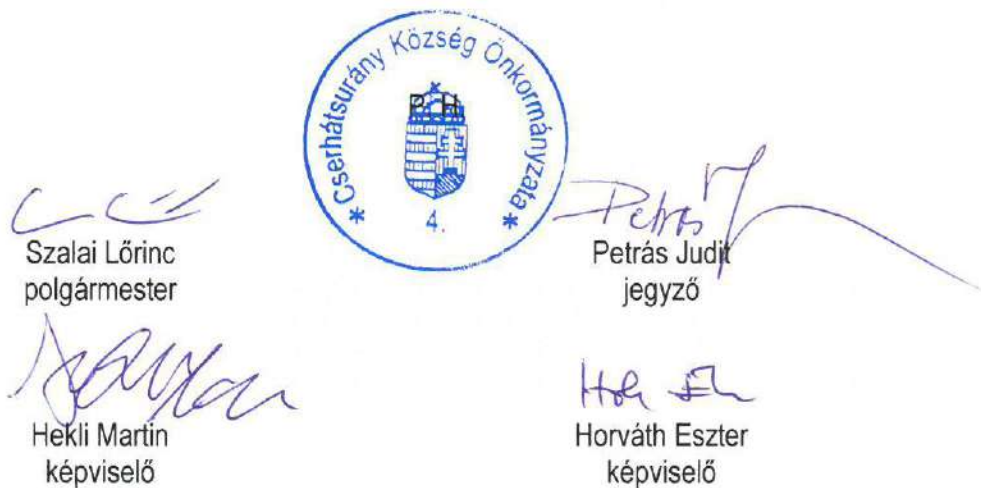 Cserhátsurány Község Önkormányzata
P. H.
4.
Petrás J
Szalai Lőrinc
polgármester
Petrás Judit
jegyző
Hekli Martin
képviselő
Horváth Eszter
képviselő